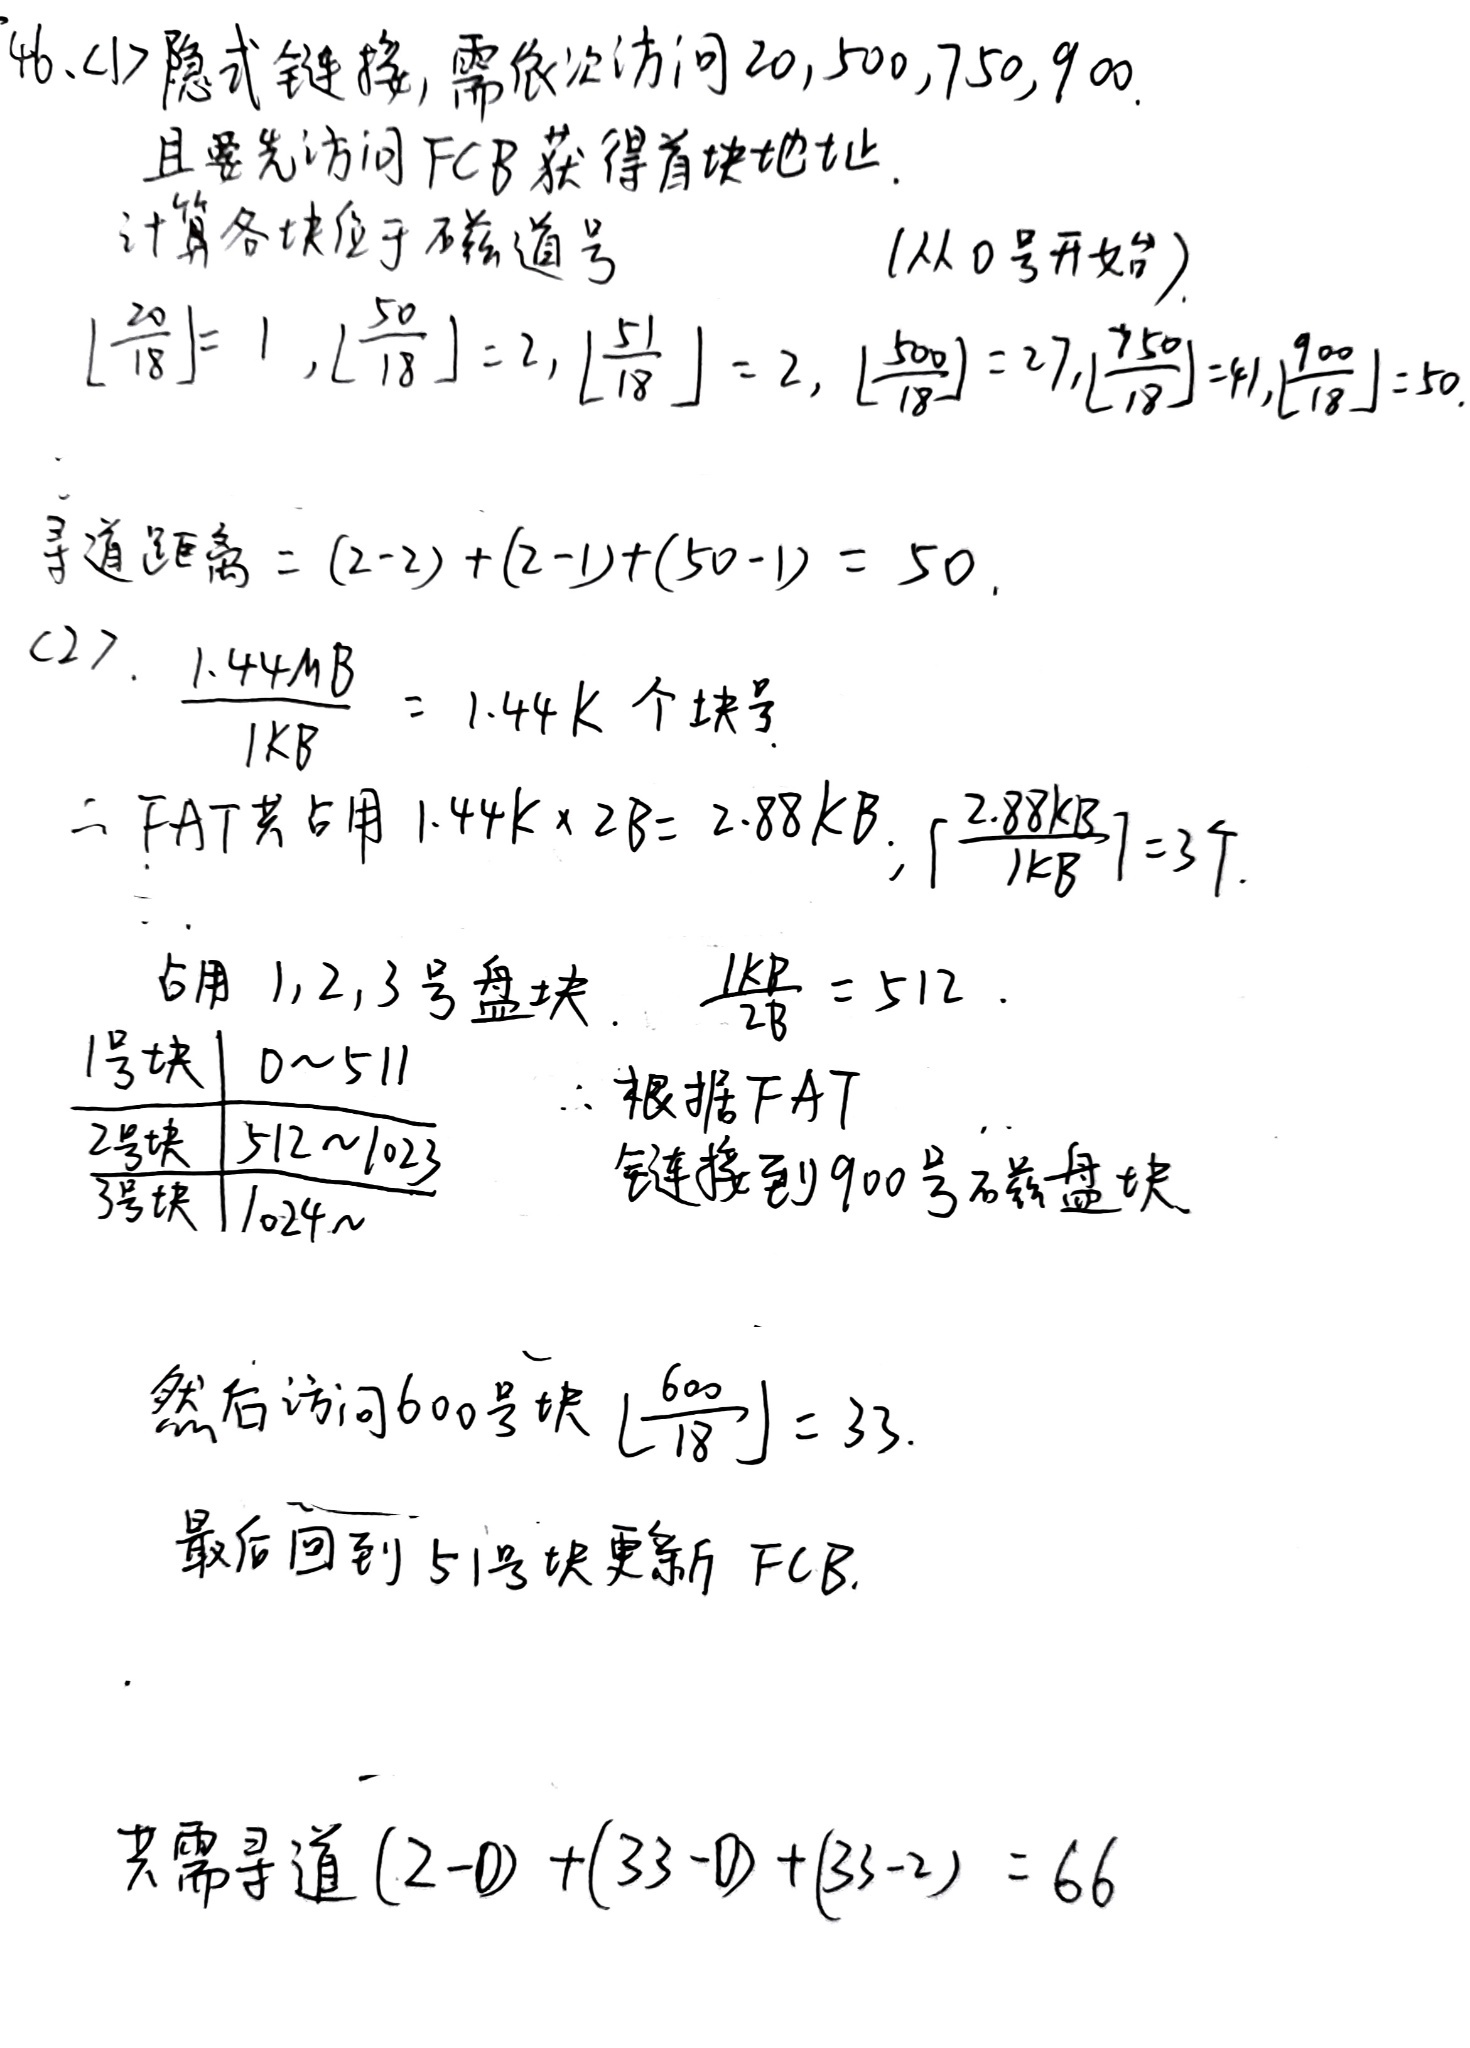 46、<1>隐式链接,需依次访问20,500,750,900.
且要先访问FCB获得首块地址.
计算各块位于磁道号 (从0号开始).
⌊20/18⌋=1,⌊50/18⌋=2,⌊51/18⌋=2,⌊500/18⌋=27,⌊750/18⌋=41,⌊900/18⌋=50.
寻道距离=(2-2)+(2-1)+(50-1)=50.
<2>. 1.44MB/1KB = 1.44K个块号.
∴ FAT共占用1.44K×2B=2.88KB.;⌈2.88KB/1KB⌉=3个.
占用 1,2,3号盘块. 1KB/2B=512.
1号块 0~511
2号块 512~1023
3号块 1024~
∴根据FAT
链接到900号磁盘块
然后访问600号块⌊600/18⌋=33.
最后回到51号块更新FCB.
共需寻道(2-0)+(33-0)+(33-2)=66